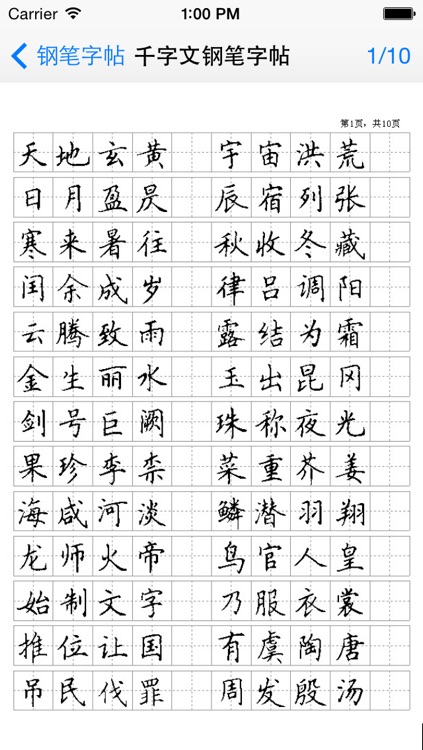 Carrier 1:00 PM
钢笔字帖 千字文钢笔字帖 1/10
第1页，共10页
天地玄黄 宇宙洪荒
日月盈昃 辰宿列张
寒来暑往 秋收冬藏
闰余成岁 律吕调阳
云腾致雨 露结为霜
金生丽水 玉出昆冈
剑号巨阙 珠称夜光
果珍李柰 菜重芥姜
海咸河淡 鳞潜羽翔
龙师火帝 鸟官人皇
始制文字 乃服衣裳
推位让国 有虞陶唐
吊民伐罪 周发殷汤